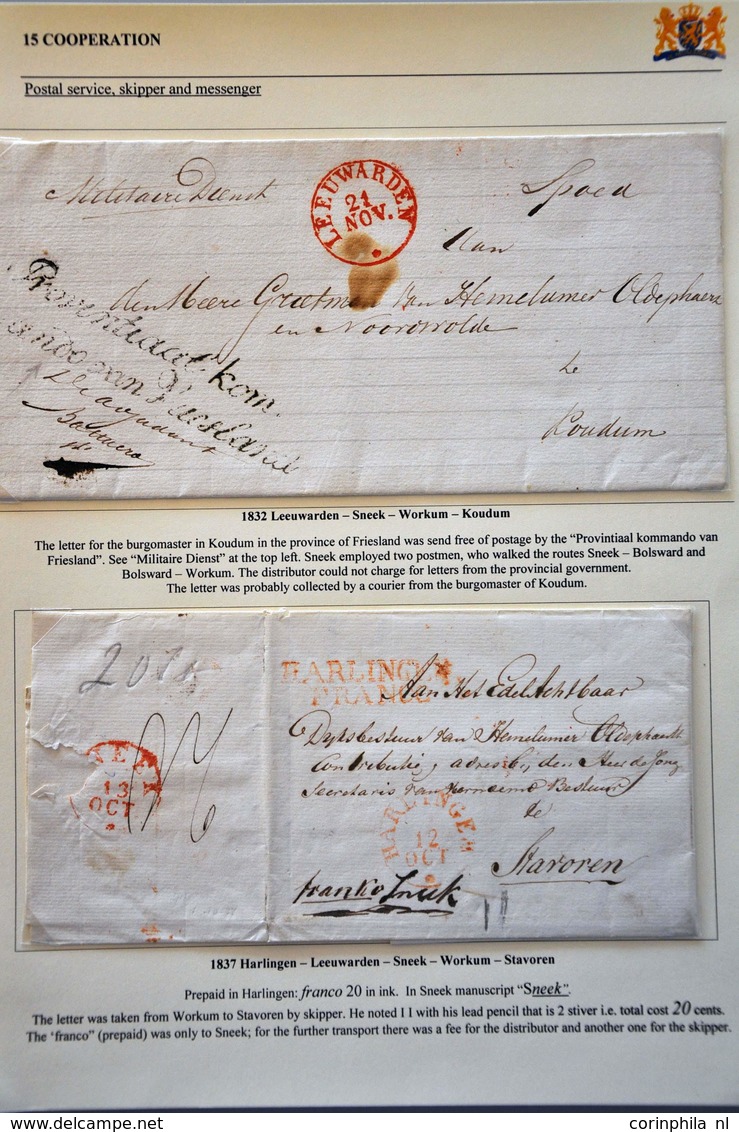 15 COOPERATION
Postal service, skipper and messenger
Militaire Dienst
LEEUWARDEN
21
NOV.
Spoed
Aan
den Heere Grietman van Hemelumer Oldephaert
en Noordwolde
te
Koudum
Provintiaal kom.
mando van Friesland
De adjudant
1832 Leeuwarden – Sneek – Workum – Koudum
The letter for the burgomaster in Koudum in the province of Friesland was send free of postage by the “Provintiaal kommando van
Friesland”. See “Militaire Dienst” at the top left. Sneek employed two postmen, who walked the routes Sneek – Bolsward and
Bolsward – Workum. The distributor could not charge for letters from the provincial government.
The letter was probably collected by a courier from the burgomaster of Koudum.
HARLINGEN
FRANCO
Aan Het Edel Achtbaar
Dyksbestuur van Hemelumer Oldephaert
Contributie, adres bij den Heer de Jong
Secretaris van vernoemd Bestuur
te
Stavoren
SNEEK
13
OCT
HARLINGEN
12
OCT
franko Sneek
1837 Harlingen – Leeuwarden – Sneek – Workum – Stavoren
Prepaid in Harlingen: franco 20 in ink. In Sneek manuscript “Sneek”.
The letter was taken from Workum to Stavoren by skipper. He noted I I with his lead pencil that is 2 stiver i.e. total cost 20 cents.
The ‘franco” (prepaid) was only to Sneek; for the further transport there was a fee for the distributor and another one for the skipper.
corinphila nl